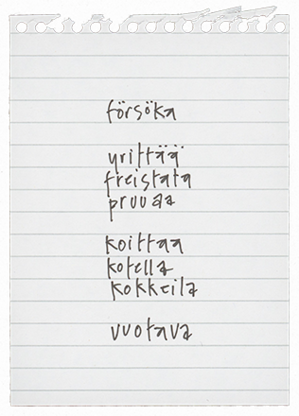 försöka
yrittää
freistata
pruuaa
koittaa
kotella
kokkeila
vuotava